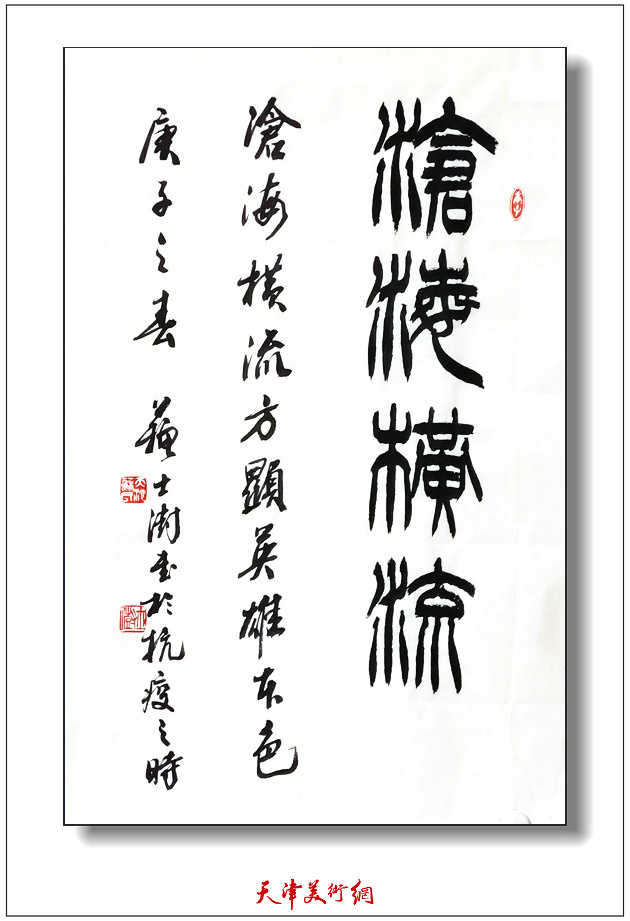 滄海橫流
滄海橫流方顯英雄本色
庚子之春 蘇士澍書於抗疫之時
天津美術網